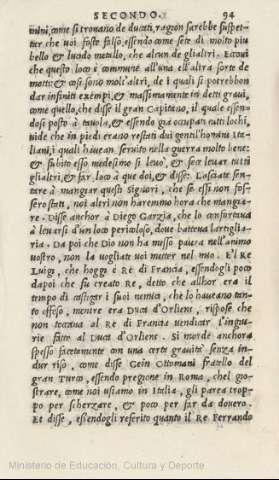 SECONDO. 94
mini, come si trouano de ducati, ragion sarebbe suspet-
ter che uoi foste falso, essendo come sete di molto piu
bello & lucido metallo, che alcun de gli altri. Eccoui
che questo loco è commune all'una e l'altra sorte de
motti: & così sono molt'altri, de i quali si potrebbon
dar infiniti exempi, & massimamente in detti graui,
come quello, che disse il gran Capitano, il quale essen-
dosi posto à tauola, & essendo già occupati tutti i lochi,
uide che in piedi erano restati doi gentil'homini Ita-
liani, i quali haueano seruito nella guerra molto bene:
& subito esso medesimo si leuò, & fece leuar tutti
gli altri, & far loco à que doi, & disse. Lasciate sen-
tare à mangiar questi Signori, che se essi non fos-
sero stati, noi altri non haremmo hora che mangia-
re. Disse anchor à Diego Garzia, che lo confortaua
à leuarsi d'un loco pericoloso, doue batteua l'artiglia-
ria. Da poi che Dio non ha messo paura nell'animo
uostro, non la uogliate uoi metter nel mio. E'l Re
Luigi, che hoggi è Re di Francia, essendogli poco
dapoi che fu creato Re, detto che allhor era il
tempo di castigar i suoi nemici, che lo haueano tan-
to offeso, mentre era Duca d'Orliens, rispose che
non toccaua al Re di Francia uendicar l'ingiu-
rie fatte al Duca d'Orliens. Si morde anchora
spesso facetamente con una certa grauità senza in-
dur riso, come disse Gein Ottomani fratello del
gran Turco, essendo pregione in Roma, chel gio-
strare, come noi usiamo in Italia, gli parea trop-
po per scherzare, & poco per far da douero.
Et disse, essendogli referito quanto il Re Ferrando
Ministerio de Educación, Cultura y Deporte